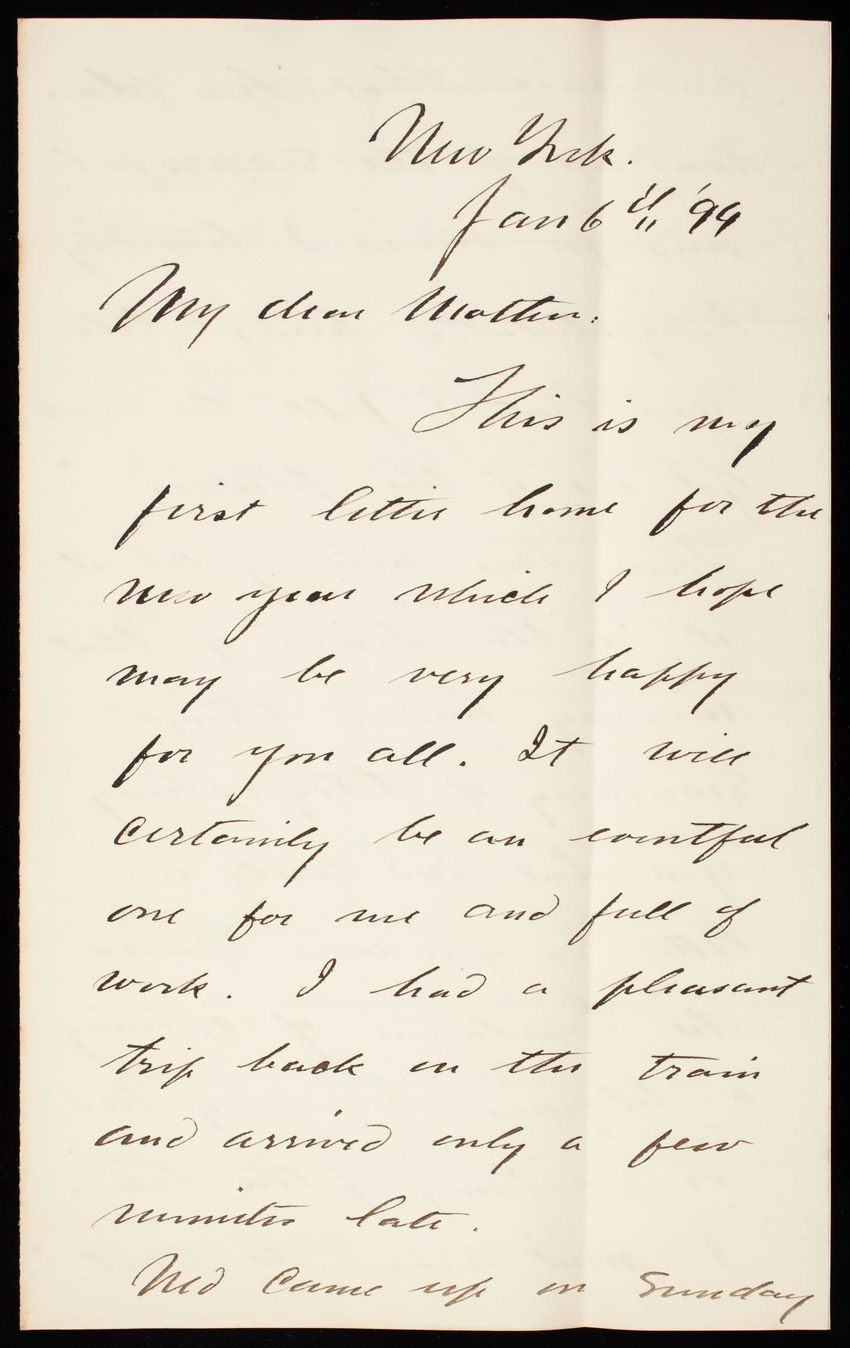 New York.
Jan 6th '94
My dear Mother:
This is my
first letter home for the
new year which I hope
may be very happy
for you all. It will
certainly be an eventful
one for me and full of
work. I had a pleasant
trip back on the train
and arrived only a few
minutes late.
Ned came up on Sunday